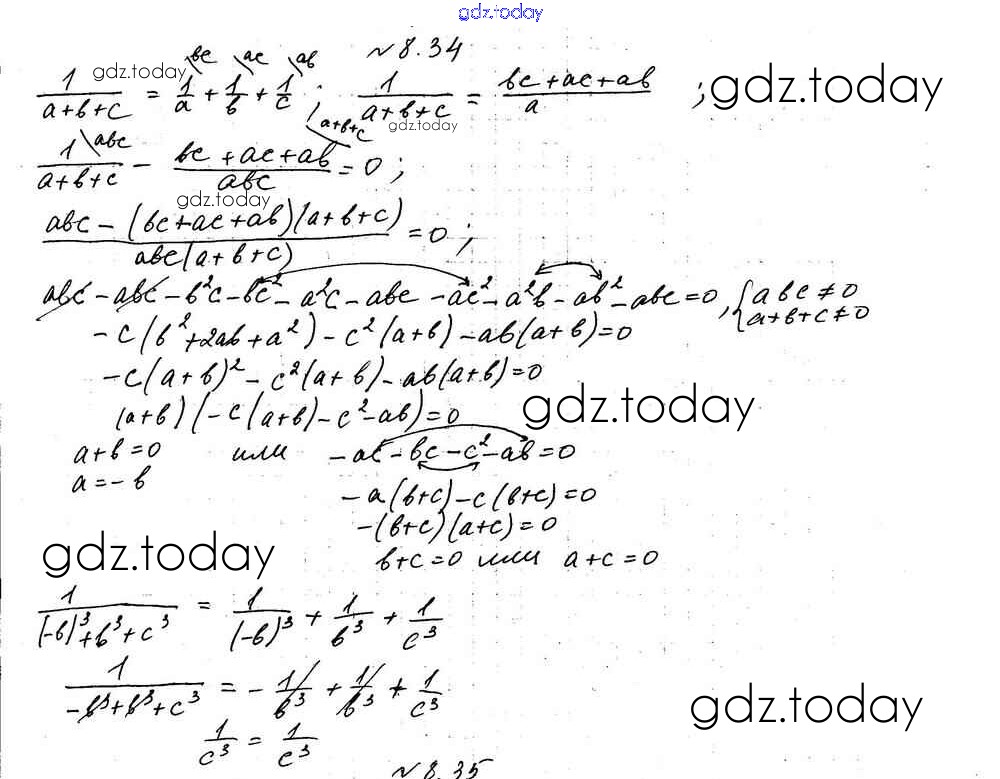 gdz.today
№8.34
1/(a+b+c) = 1\bc/a + 1\ac/b + 1\ab/c ; 1/(a+b+c) = (bc+ac+ab)/a ;
gdz.today gdz.today gdz.today
1\abc/(a+b+c) - (bc+ac+ab)\a+b+c/abc = 0 ;
gdz.today
(abc - (bc+ac+ab)(a+b+c))/(abc(a+b+c)) = 0 ;
abc - abc - b²c - bc² - a²c - abc - ac² - a²b - ab² - abc = 0, { abc ≠ 0
a+b+c ≠ 0
-c(b²+2ab+a²) - c²(a+b) - ab(a+b) = 0
-c(a+b)² - c²(a+b) - ab(a+b) = 0
(a+b)(-c(a+b) - c² - ab) = 0
gdz.today
a+b=0 или -ac - bc - c² - ab = 0
a=-b
-a(b+c) - c(b+c) = 0
-(b+c)(a+c) = 0
b+c=0 или a+c=0
gdz.today
1/((-b)³+b³+c³) = 1/(-b)³ + 1/b³ + 1/c³
1/(-b³+b³+c³) = -1/b³ + 1/b³ + 1/c³
gdz.today
1/c³ = 1/c³
№8.35